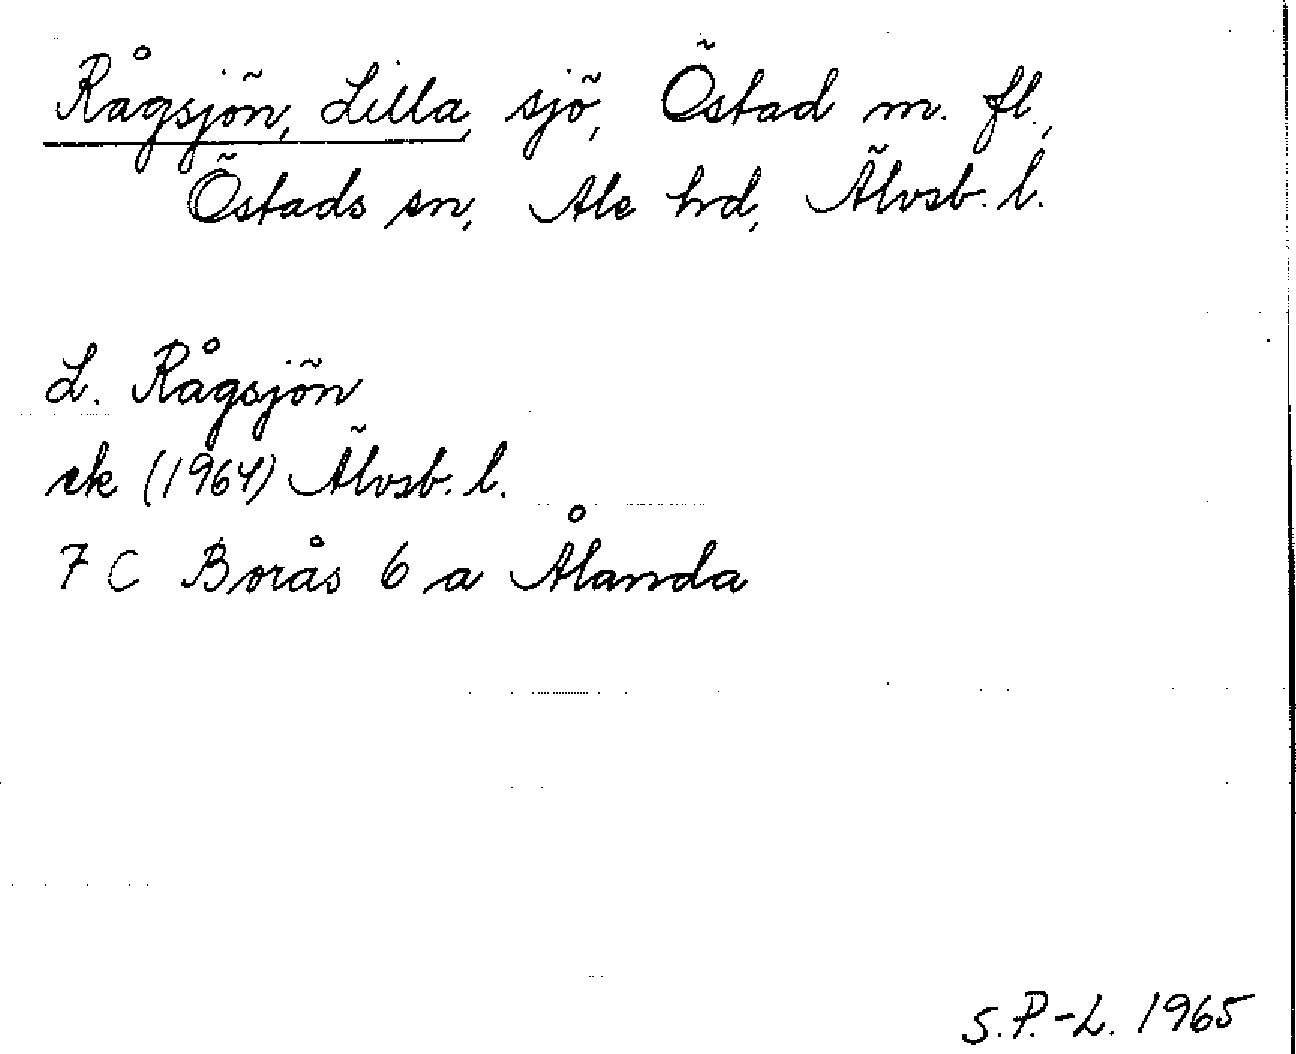 Rågsjön, Lilla, sjö, Östad m. fl.,
Östads sn, Ale hd, Älvsb. l.
L. Rågsjön
rk (1964) Älvsb. l.
7 C Borås 6 a Ålanda
S.P.-L. 1965